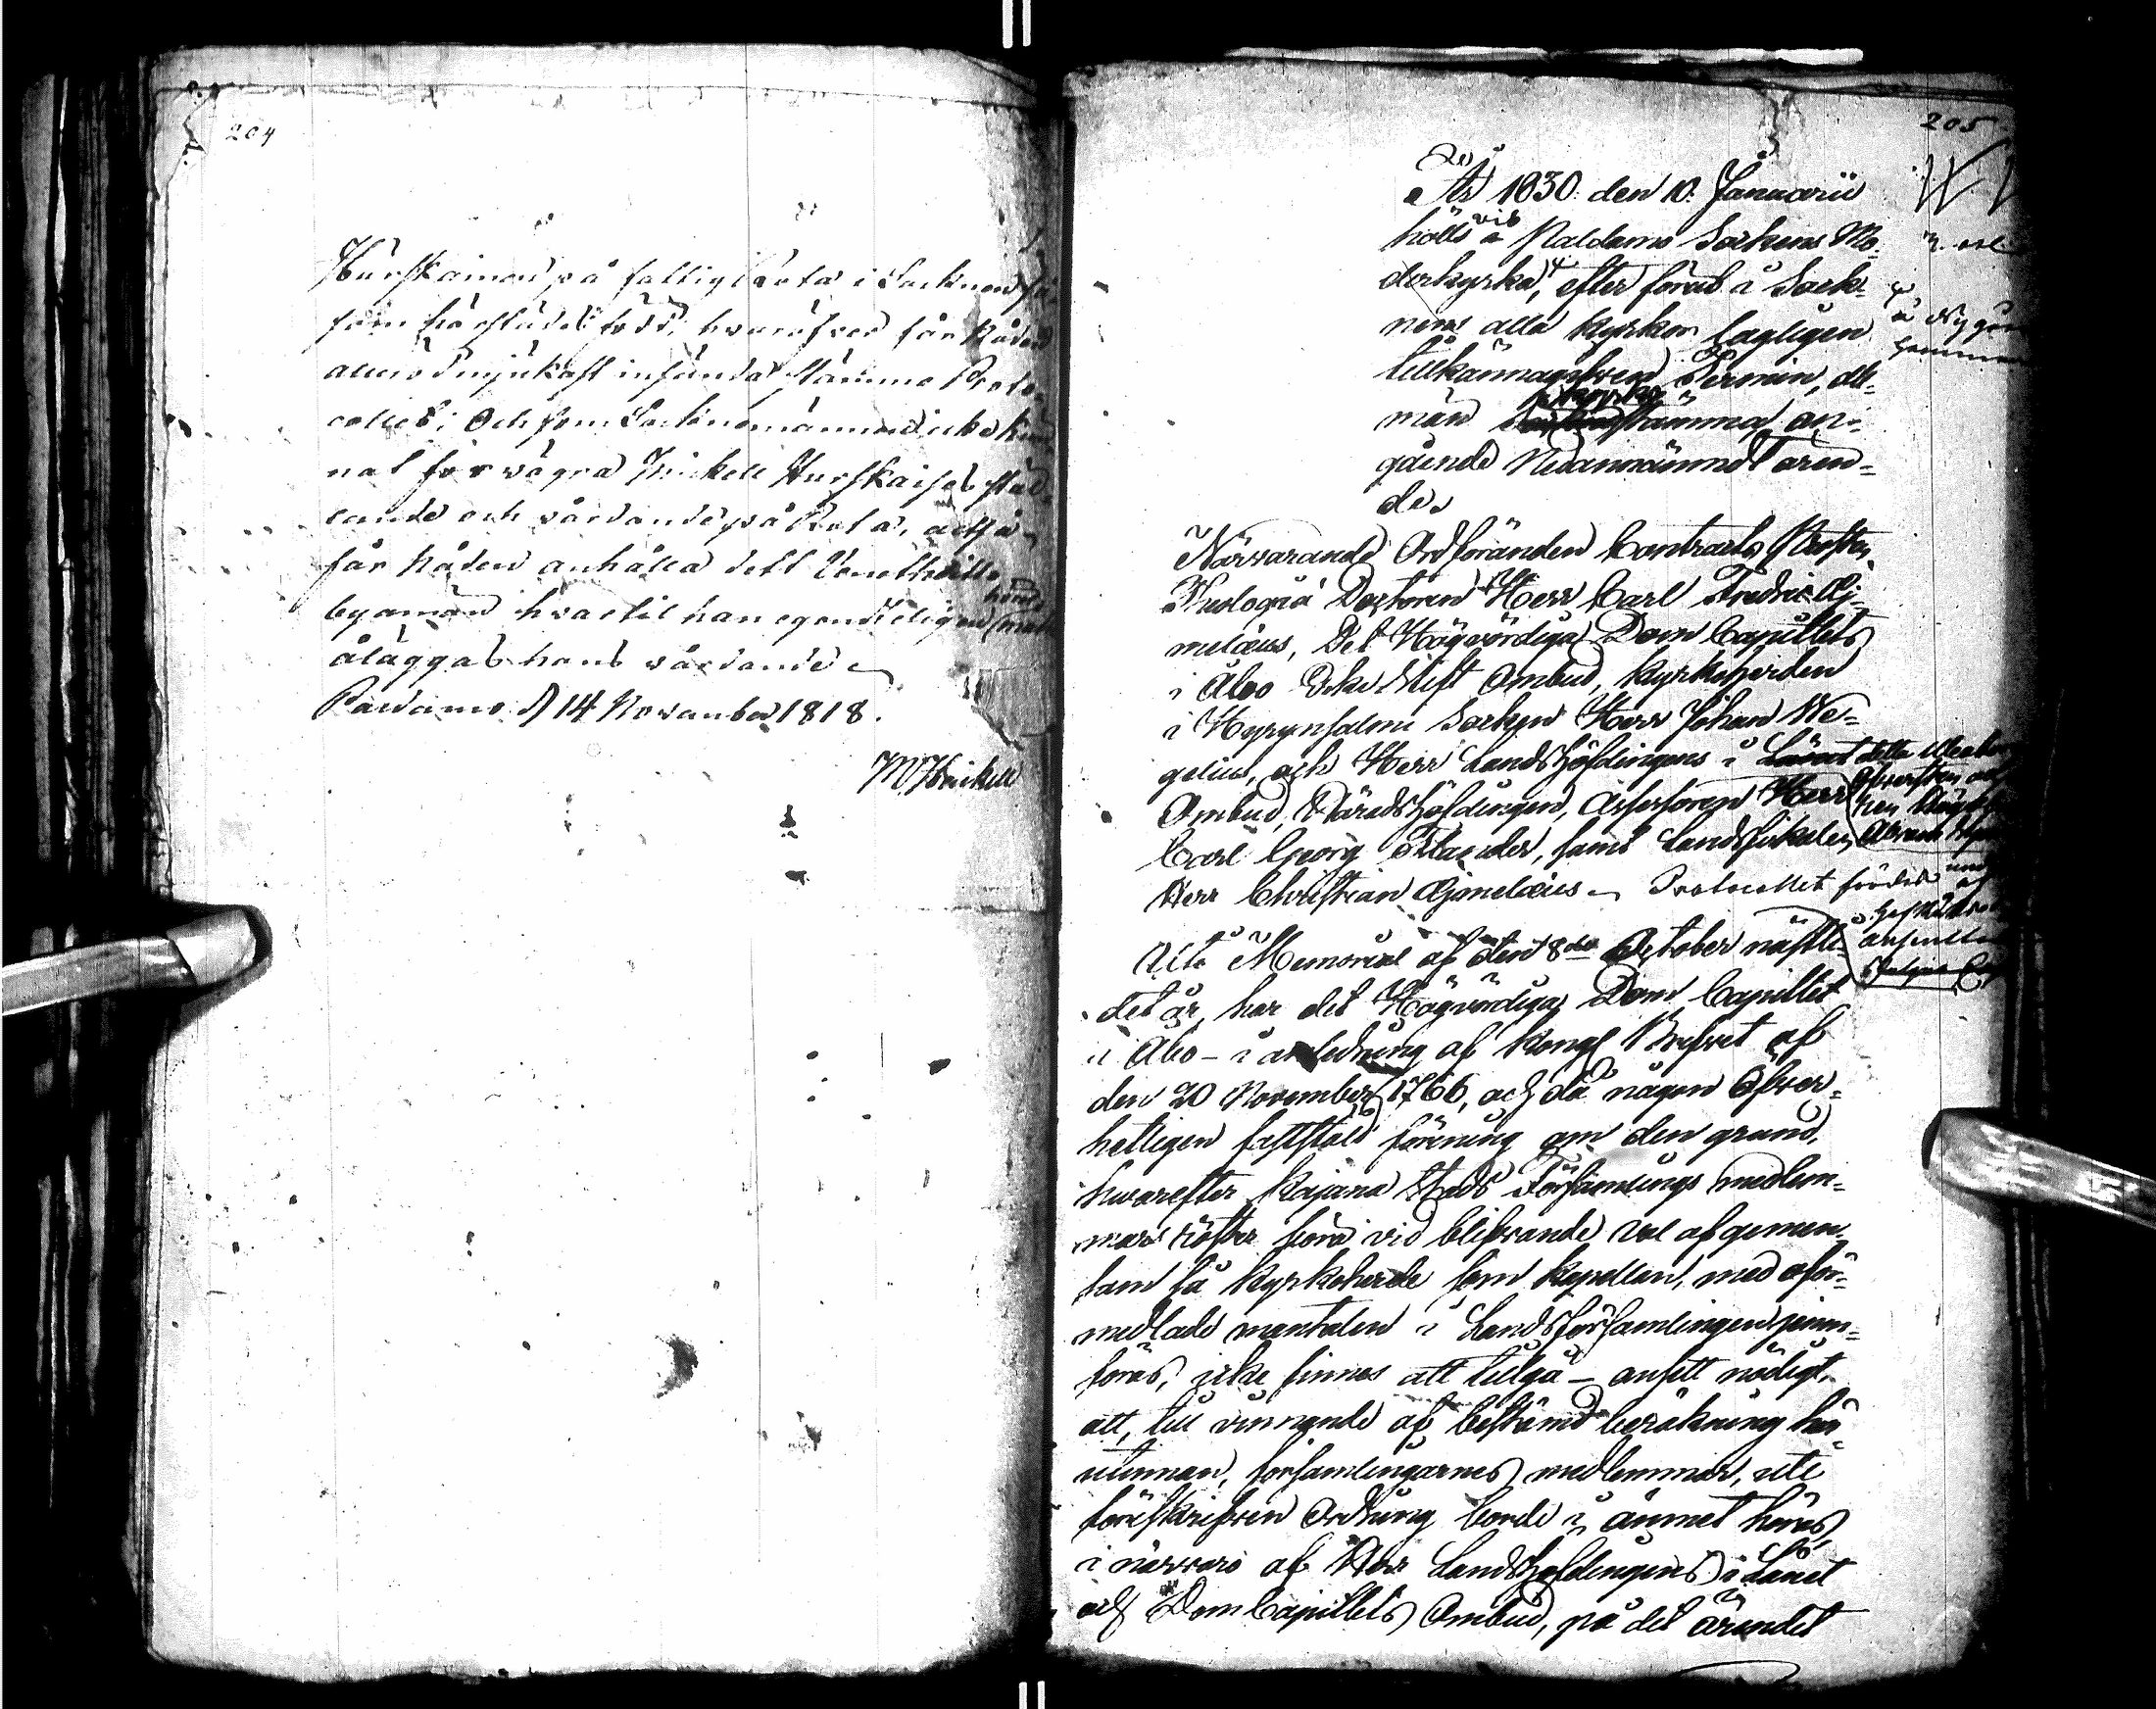 204
Hurskainen på fattig Rota i Socknen så
som härstädes född; hvaröfver får Råden
allerödmjukast infordra Stämmo Proto-
collet; Och som Sockne männerne icke kun
nat förvägra Michell Hurskaises ställ
lande och vårdande på Rota, altså
får Råden anhålla det Venetheitto
byamän hvartil han egendteligen hörde
åläggas hans vårdande
Paldamo d 14 November 1818.
M Heickell
205
År 1830 den 10 Januarii
hölls vid Paldamo Sockens Mo-
derkyrka, efter förut i Sock-
nens alla Kyrkor lagligen
tillkännagifven Termin, all-
män Kyrkostämma, an-
gående Nedannämndt ären-
de.
Närvarande Ordföranden Contracts Prosten,
Theologiæ Doctoren Herr Carl Fredric Aj-
melæus, Det Högvördiga Dom Capitlets
i Åbo Erke Stift Ombud, Kyrkoherden
i Hyrynsalmi Socken Herr Johan We-
gelius, och Herr Landshöfdingens i Länet
Ombud, Häradshöfdingen, Assessoren Herr
Carl Georg Flander, samt Landsfiskalen
Herr Christian Ajmelæus. Protocollet fördes
Uti Memorial af den 8de October nästle-
det år, har det Högvördiga Dom Capitlet
i Åbo – i anledning af Kongl Brefvet af
den 20 November 1766, och då någon Öfver-
hetligen fastställd förening om den grund,
hvarefter Kajana Stads Församlings medlem-
mars röster böra vid blifvande val af gemen-
sam så Kyrkoherde som Kapellan, med oför-
medlade mantalen i Landsförsamlingen jemn-
föras, icke finnes att tillgå – ansett nödigt,
att, till vinnande af bestämd beräkning här
utinnan, församlingarnes medlemmar, uti
föreskrifven Ordning borde i ämnet höras,
i närvaro af Herr Landshöfdingens i Länet
och Dom Capitlets Ombud, på det ärendet